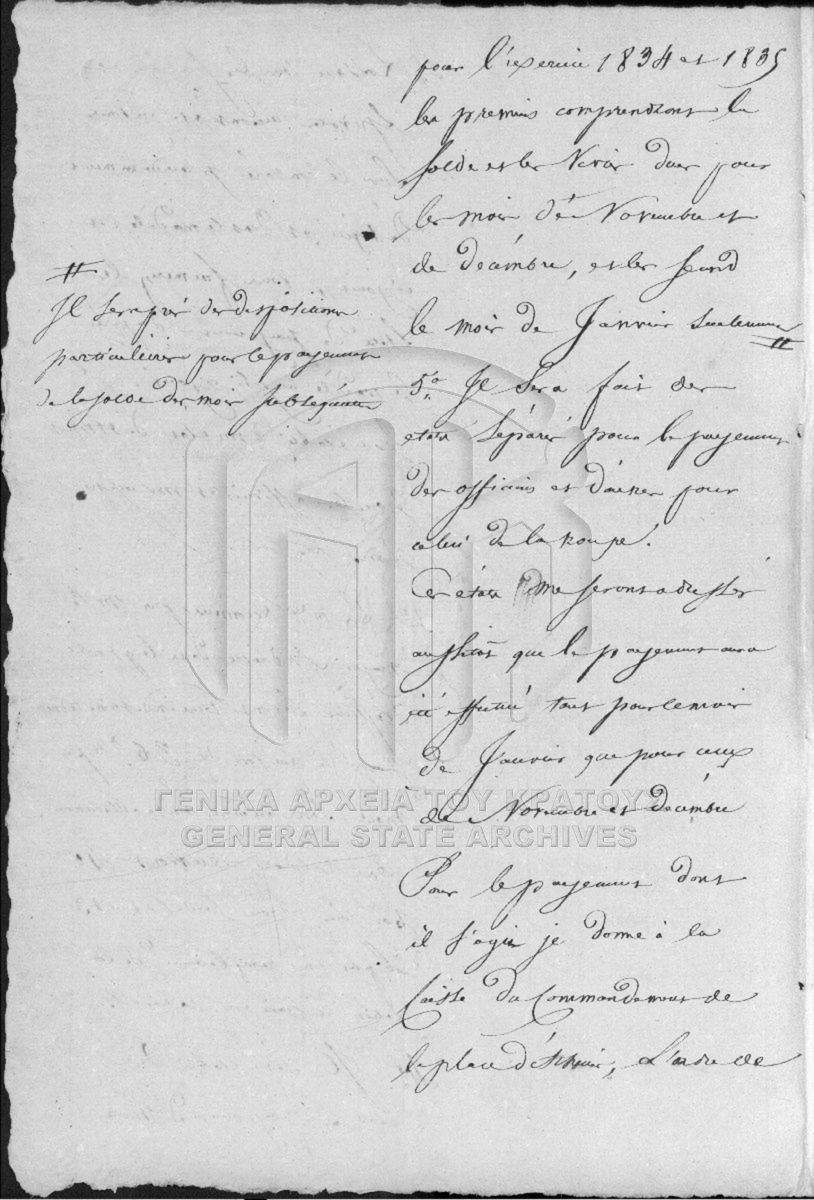 pour l'exercice 1834 et 1835
les premiers comprendront la
solde et les vivres dues pour
les mois de Novembre et
de décembre, et les second
le mois de Janvier seulement #
#
Il sera pris des dispositions
particulières pour le payement
de la solde des mois subséquents
5.° Il sera fait des
etats séparés pour le payement
des officiers et d'autres pour
celui de la troupe.
Ces états me seront adressés
aussitot que le payement aura
été effectué tant pour le mois
de Janvier que pour ceux
de Novembre et décembre
Pour le payement dont
il s'agit je donne à la
Caisse du Commandement de
la place d'Athènes, l'ordre de
ΓΕΝΙΚΑ ΑΡΧΕΙΑ ΤΟΥ ΚΡΑΤΟΥΣ
GENERAL STATE ARCHIVES